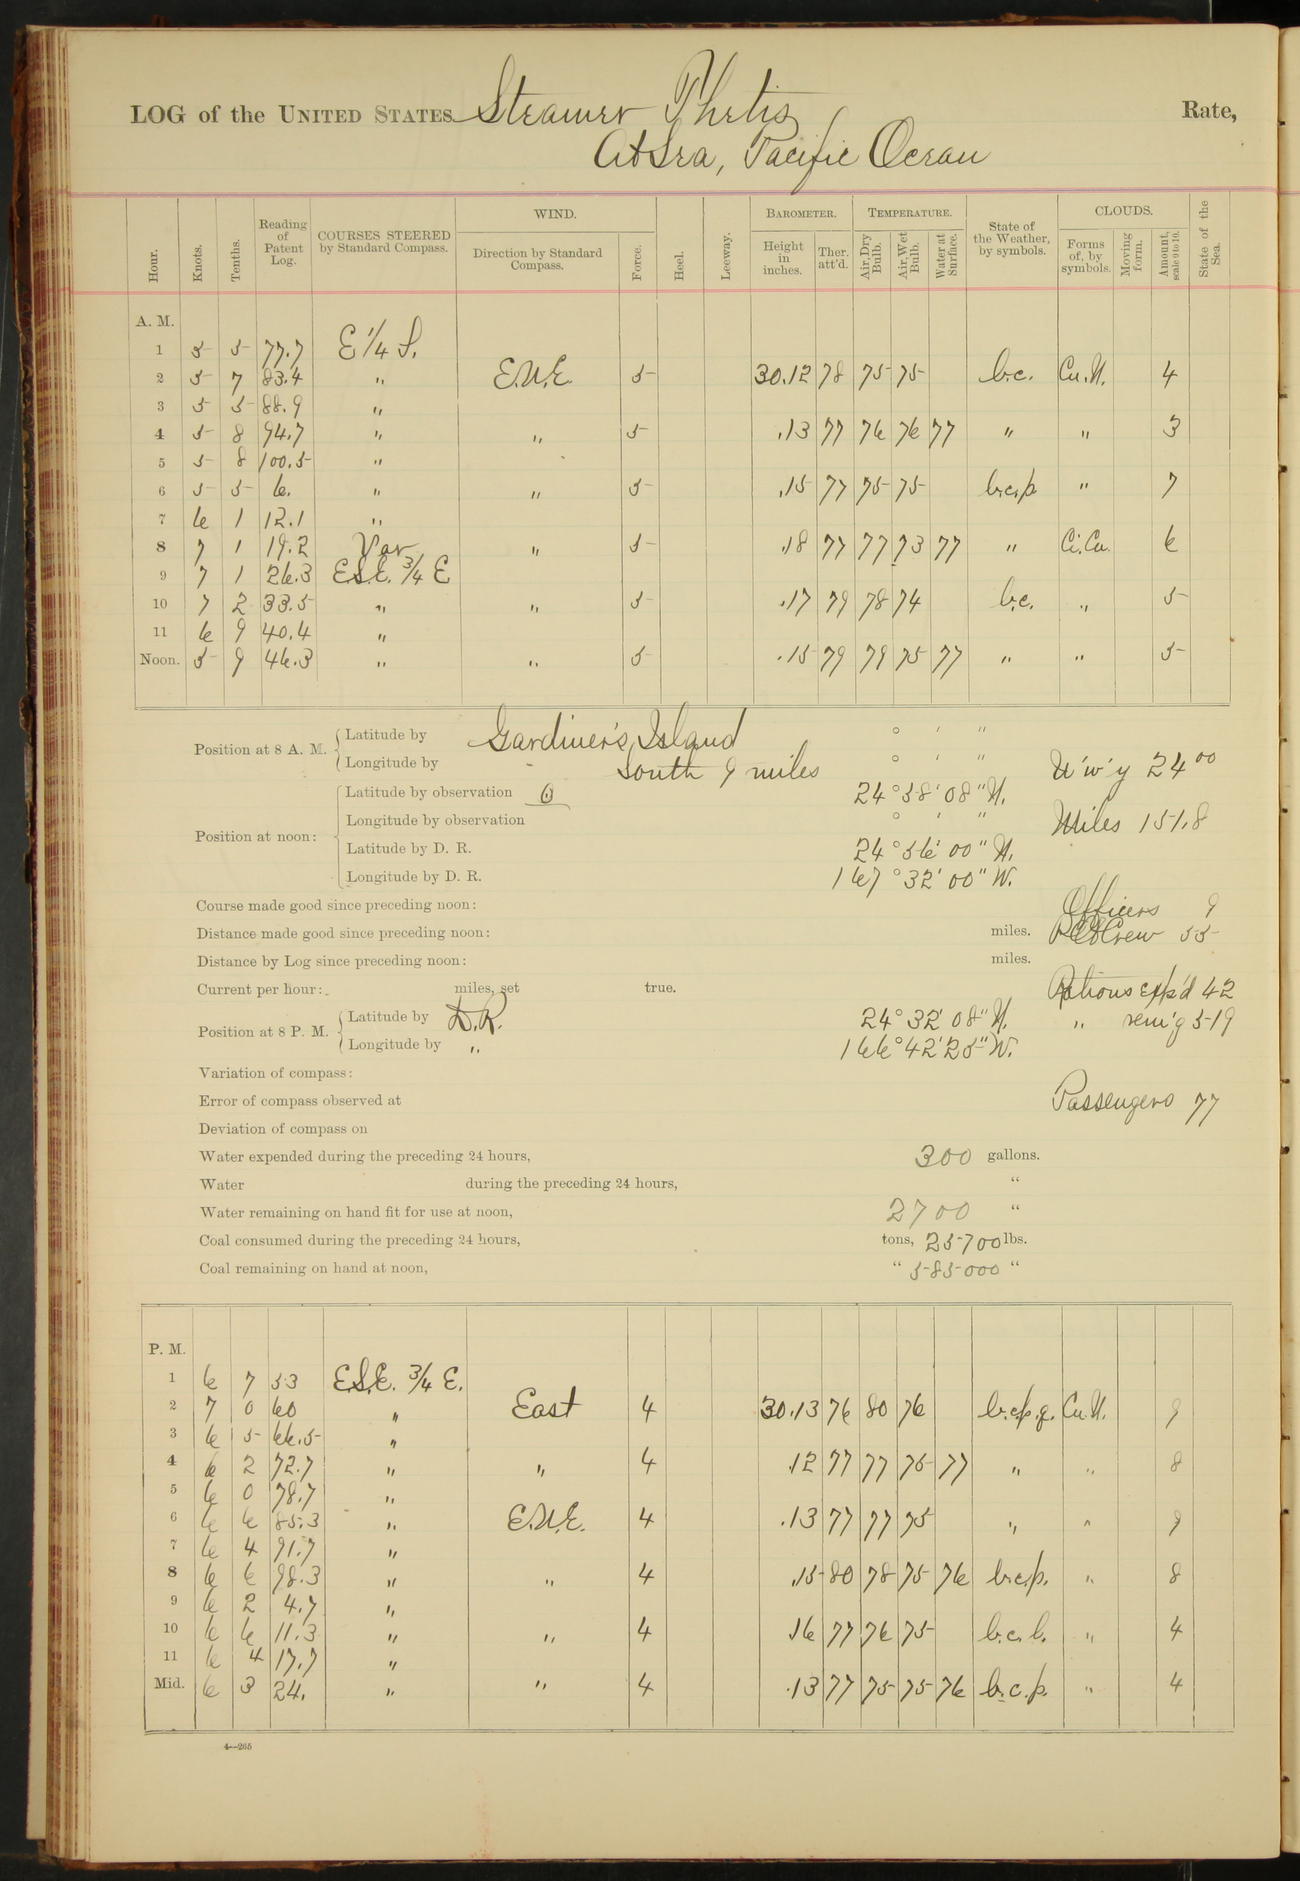 LOG of the UNITED STATES Steamer Thetis Rate,
At Sea, Pacific Ocean
Hour. Knots. Tenths. Reading of Patent Log. COURSES STEERED by Standard Compass. WIND. Direction by Standard Compass. Force. Heel. Leeway. BAROMETER. Height in inches. Ther. att'd. TEMPERATURE. Air, Dry Bulb. Air, Wet Bulb. Water at Surface. State of the Weather, by symbols. CLOUDS. Forms of, by symbols. Moving form. Amount, scale 0 to 10. State of the Sea.
A. M.
1 5 5 77.7 E 1/4 S.
2 5 7 83.4 " E.N.E. 5 30.12 78 75 75 b.c. Cu.N. 4
3 5 5 88.9 "
4 5 8 94.7 " " 5 .13 77 76 76 77 " " 3
5 5 8 100.5 "
6 5 5 6. " " 5 .15 77 75 75 b.c.p. " 7
7 6 1 12.1 "
8 7 1 19.2 Var " 5 .18 77 77 73 77 " Ci.Cu. 6
9 7 1 26.3 E.S.E. 3/4 E
10 7 2 33.5 " " 5 .17 79 78 74 b.c. " 5
11 6 9 40.4 "
Noon. 5 9 46.3 " " 5 .15 79 79 75 77 " " 5
Position at 8 A. M. Latitude by Gardiner's Island ° ' "
Longitude by South 9 miles ° ' " U'w'y 24 00
Position at noon: Latitude by observation 24° 58' 08" N.
Longitude by observation ° ' " Miles 151.8
Latitude by D. R. 24° 56' 00" N.
Longitude by D. R. 167° 32' 00" W.
Course made good since preceding noon: Officers 9
Distance made good since preceding noon: miles. Crew 55
Distance by Log since preceding noon: miles.
Current per hour: miles, set true. Rations Exp'd 42
Position at 8 P. M. Latitude by D.R. 24° 32' 08" N. " rem'g 519
Longitude by " 166° 42' 25" W.
Variation of compass:
Error of compass observed at Passengers 77
Deviation of compass on
Water expended during the preceding 24 hours, 300 gallons.
Water during the preceding 24 hours, "
Water remaining on hand fit for use at noon, 2700 "
Coal consumed during the preceding 24 hours, tons, 25700 lbs.
Coal remaining on hand at noon, " 585000 "
P. M.
1 6 7 53 E.S.E. 3/4 E.
2 7 0 60 " East 4 30.13 76 80 76 b.c.p.q. Cu.N. 9
3 6 5 66.5 "
4 6 2 72.7 " " 4 .12 77 77 76 77 " " 8
5 6 0 78.7 "
6 6 6 85.3 " E.N.E. 4 .13 77 77 75 " " 9
7 6 4 91.7 "
8 6 6 98.3 " " 4 .15 80 78 75 76 b.c.p. " 8
9 6 2 4.7 "
10 6 6 11.3 " " 4 .16 77 76 75 b.c.l. " 4
11 6 4 17.7 "
Mid. 6 3 24. " " 4 .13 77 75 75 76 b.c.p. " 4
4—265